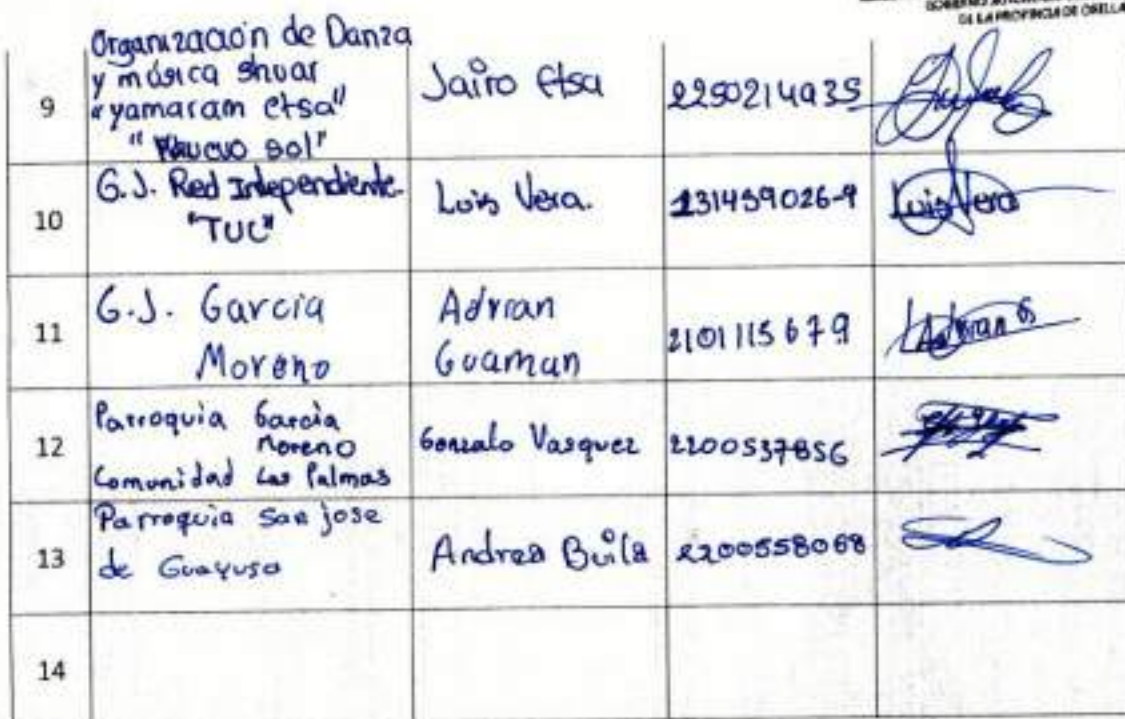 DE LA PROVINCIA DE ORELLA
9
Organización de Danza
y música shuar
"yamaram etsa"
"Nuevo sol"
Jairo Etsa
2250214935
10
G.J. Red Independiente.
"TUC"
Luis Vera.
131459026-9
Luis Vera
11
G.J. Garcia
Moreno
Adrian
Guaman
2101115679
Adrian G
12
Parroquia Garcia
Moreno
Comunidad Las Palmas
Gonzalo Vasquez
2200537856
13
Parroquia San jose
de Guayusa
Andrea Buila
2200558068
14